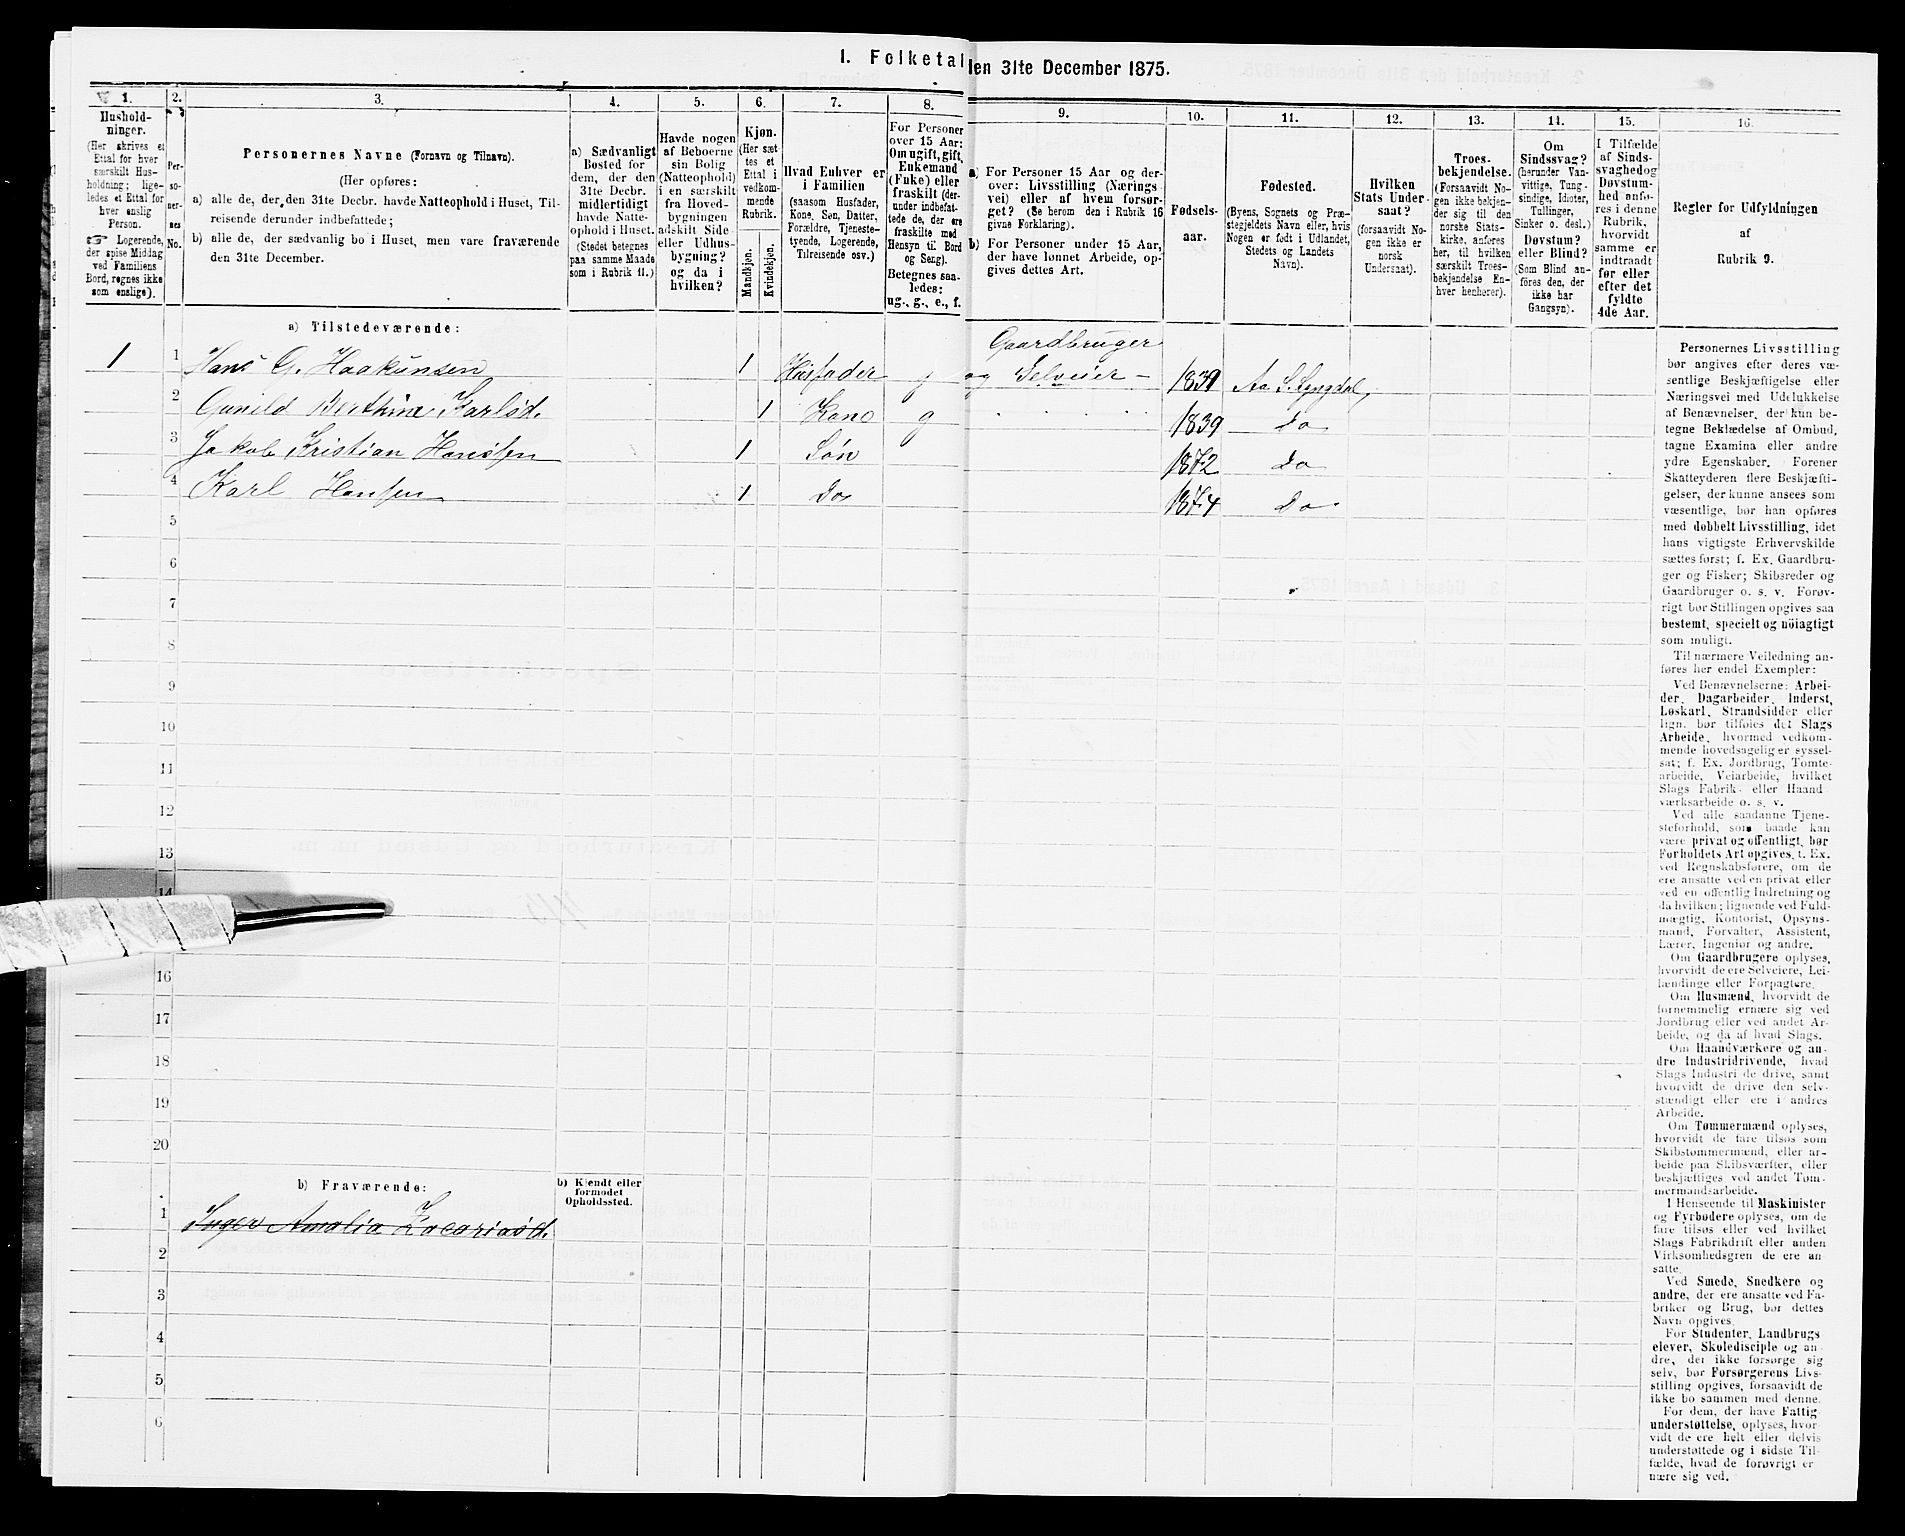 I. Folketal den 31te December 1875.
1.
Hushold-
ninger.
(Her skrives et
Ettal for hver
særskilt Hus-
holdning; lige-
ledes et Ettal for
hver enslig
Person.
☞ Logerende,
der spise Middag
ved Familiens
Bord, regnes ikke
som enslige).
2.
Per-
so-
ner-
nes
No.
3.
Personernes Navne (Fornavn og Tilnavn).
(Her opføres:
a) alle de, der den 31te Decbr. havde Natteophold i Huset, Til-
reisende derunder indbefattede;
b) alle de, der sædvanlig bo i Huset, men vare fraværende
den 31te December.
4.
a) Sædvanligt
Bosted for
dem, der den
31te Decbr.
midlertidigt
havde Natte-
ophold i Huset.
(Stedet betegnes
paa samme Maade
som i Rubrik 11.)
5.
Havde nogen
af Beboerne
sin Bolig
(Natteophold)
i en særskilt
fra Hoved-
bygningen
adskilt Side-
eller Udhus-
bygning?
og da i
hvilken?
6.
Kjøn.
(Her sæt-
tes et
Ettal i
vedkom-
mende
Rubrik.
Mandkjøn.
Kvindekjøn.
7.
Hvad Enhver er
i Familien
(saasom Husfader,
Kone, Søn, Datter,
Forældre, Tjeneste-
tyende, Logerende,
Tilreisende osv.)
8.
For Personer
over 15 Aar:
Om ugift, gift,
Enkemand
(Enke) eller
fraskilt (der-
under indbefat-
tede de, der ere
fraskilte med
Hensyn til Bord
og Seng).
Betegnes saa-
ledes:
ug., g., e., f.
9.
a) For Personer 15 Aar og der-
over: Livsstilling (Nærings-
vei) eller af hvem forsør-
get? (Se herom den i Rubrik 16
givne Forklaring).
b) For Personer under 15 Aar,
der have lønnet Arbeide, op-
gives dettes Art.
10.
Fødsels-
aar.
11.
Fødested.
(Byens, Sognets og Præ-
stegjeldets Navn eller, hvis
Nogen er født i Udlandet,
Stedets og Landets
Navn).
12.
Hvilken
Stats Under-
saat?
(forsaavidt No-
gen ikke er
norsk
Undersaat).
13.
Troes-
bekjendelse.
(Forsaavidt No-
gen ikke bekjen-
der sig til den
norske Stats-
kirke, anføres
her, til hvilken
særskilt Troes-
bekjendelse En-
hver henhører).
14.
Om
Sindssvag?
(herunder Van-
vittige, Tung-
sindige, Idioter,
Tullinger,
Sinker o. desl.)
Døvstum?
eller Blind?
(Som Blind an-
føres den, der
ikke har
Gangsyn).
15.
I Tilfælde
af Sinds-
svaghed og
Døvstum-
hed anfø-
res i denne
Rubrik,
hvorvidt
samme er
indtraadt
før eller
efter det
fyldte
4de Aar.
16.
Regler for Udfyldningen
af
Rubrik 9.
a) Tilstedeværende:
1 1 Hans G. Haakunsen 1 Husfader g Gaardbruger
og Selveier 1839 Aa S. Lyngdal
2 Gunild Berthine Karlsd. 1 Kone g 1839 do
3 Jakob Kristian Hanssen 1 Søn 1872 do
4 Karl Hansen 1 do 1874 do
5
6
7
8
9
10
11
12
13
14
16
17
18
19
20
b) Fraværende:
b) Kjendt eller
formodet
Opholdssted.
1 Inger Amalia Zacariasd.
2
3
4
5
6
Personernes Livsstilling
bør angives efter deres væ-
sentlige Beskjæftigelse eller
Næringsvei med Udelukkelse
af Benævnelser, der kun be-
tegne Beklædelse af Ombud,
tagne Examina eller andre
ydre Egenskaber. Forener
Skatteyderen flere Beskjæfti-
gelser, der kunne ansees som
væsentlige, bør han opføres
med dobbelt Livsstilling, idet
hans vigtigste Erhvervskilde
sættes først; f. Ex. Gaardbru-
ger og Fisker; Skibsreder og
Gaardbruger o. s. v. Forøv-
rigt bør Stillingen opgives saa
bestemt, specielt og nøiagtigt
som muligt.
Til nærmere Veiledning an-
føres her endel Exempler:
Ved Benævnelserne: Arbei-
der, Dagarbeider, Inderst,
Løskarl, Strandsidder eller
lign. bør tilføies det Slags
Arbeide, hvormed vedkom-
mende hovedsagelig er syssel-
sat; f. Ex. Jordbrug, Tomte-
arbeide, Veiarbeide, hvilket
Slags Fabrik- eller Haand
værksarbeide o. s. v.
Ved alle saadanne Tjene-
steforhold, som baade kan
være privat og offentligt, bør
Forholdets Art opgives, f. Ex.
ved Regnskabsførere, om de
ere ansatte ved en privat eller
ved en offentlig Indretning og
da hvilken; lignende ved Fuld-
mægtig, Kontorist, Opsyns-
mand, Forvalter, Assistent,
Lærer, Ingeniør og andre.
Om Gaardbrugere oplyses,
hvorvidt de ere Selveiere, Lei-
lændinge eller Forpagtere.
Om Husmænd, hvorvidt de
fornemmelig ernære sig ved
Jordbrug eller ved andet Ar-
beide, og da af hvad Slags.
Om Haandværkere og an-
dre Industridrivende, hvad
Slags Industri de drive, samt
hvorvidt de drive den selv-
stændigt eller ere i andres
Arbeide.
Om Tømmermænd oplyses,
hvorvidt de fare tilsøs som
Skibstømmermænd, eller ar-
beide paa Skibsværfter, eller
beskjæftiges ved andet Tøm-
mermandsarbeide.
I Henseende til Maskinister
og Fyrbødere oplyses, om de
fare tilsøs eller ved hvilket
Slags Fabrikdrift eller anden
Virksomhedsgren de ere an
satte.
Ved Smede, Snedkere og
andre, der ere ansatte ved Fa-
briker og Brug, bør dettes
Navn opgives.
For Studenter, Landbrugs
elever, Skoledisciple og an-
dre, der ikke forsørge sig
selv, bør Forsørgerens Livs-
stilling opgives, forsaavidt de
ikke bo sammen med denne.
For dem, der have Fattig
understøttelse, oplyses, hvor
vidt de ere helt eller delvis
understøttede og i sidste Til-
fælde, hvad de forøvrigt er
nære sig ved.